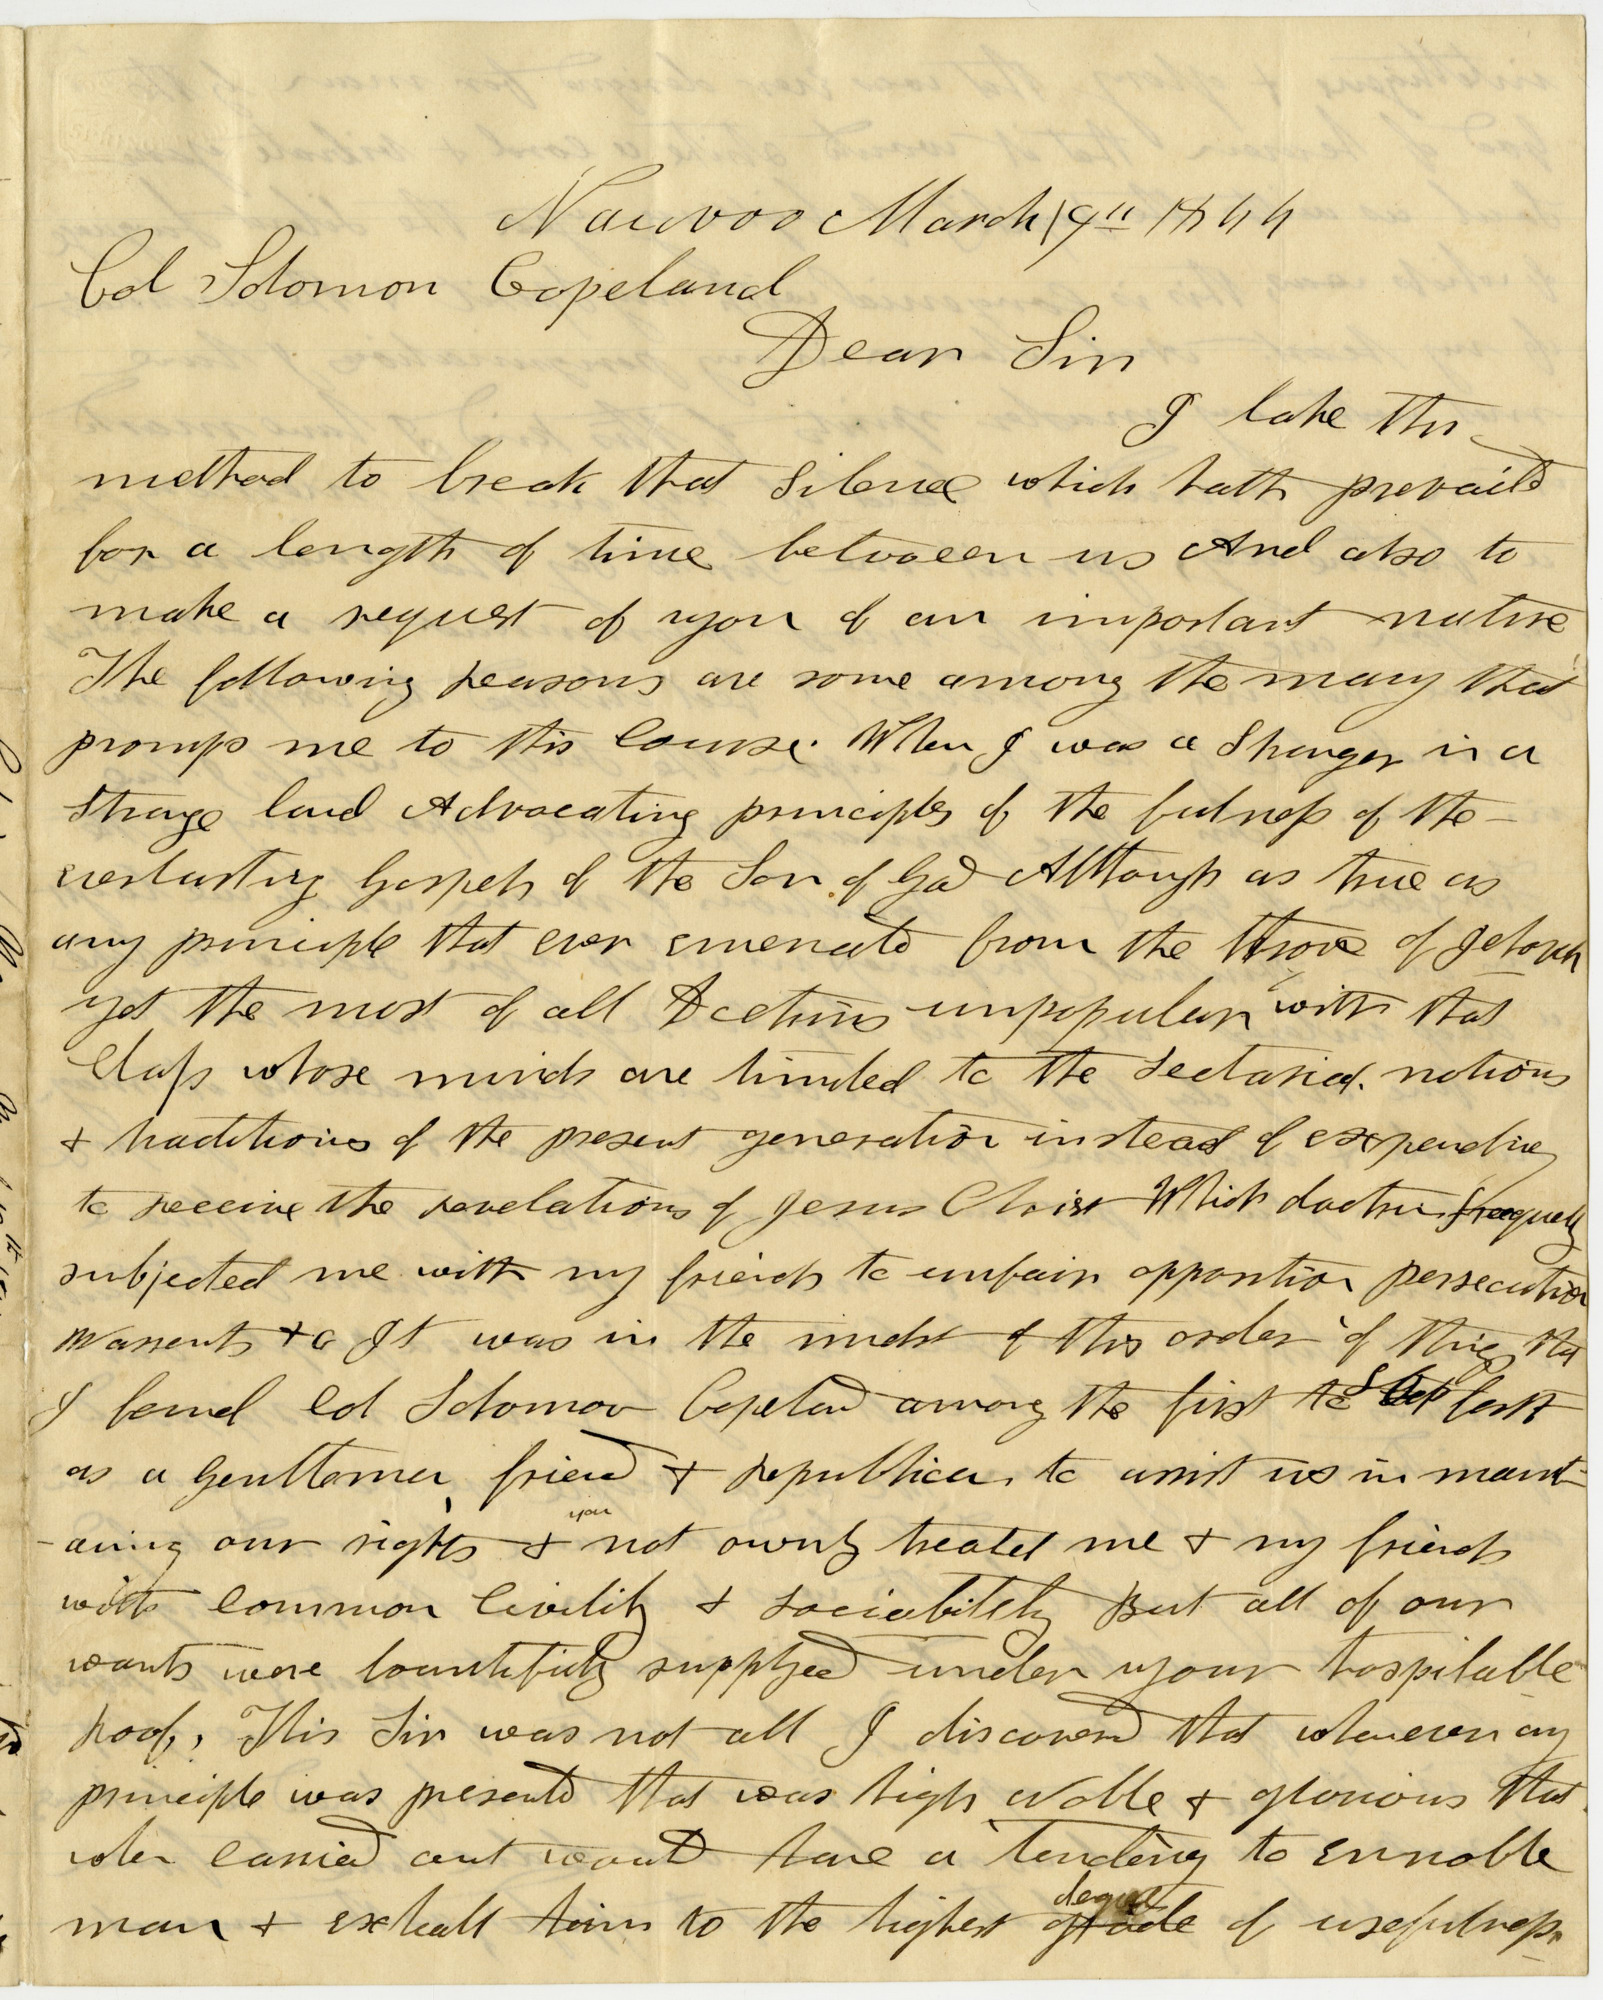 Nauvoo March 19th 1844
Col Solomon Copeland
Dear Sir
I take this
method to break that silence which hath prevaild
for a length of time between us And also to
make a request of you of an important nature
The following reasons are some among the many that
promps me to this course. When I was a Stranger in a
Strange land Advocating principles of the fulness of the
everlasting Gospels of the Son of God Although as true as
any principle that ever emenated from the throne of Jehovah
yet the most of all Doctrins unpopular with that
Class whose minds are limited to the Sectarian notions
& traditions of the present generation instead of expanding
to receive the revelations of Jesus Christ Which doctrin frequently
subjected me with my friends to unfair opposition persecution
warrents &c It was in the midst of this order of things that
I found Col Solomon Copeland among the first to Step forth
as a gentleman, friend & republican to assist us in maint
-aining our rights & you not ownly treated me & my friends
with common Civility & sociability But all of our
wants were bountifully supplyed under your hospitable
roof. This Sir was not all I discovered that whenever any
principle was presented that was high Noble & glorious that
when carried out would have a tendency to ennoble
man & exhalt him to the highest degree grade of usefulness